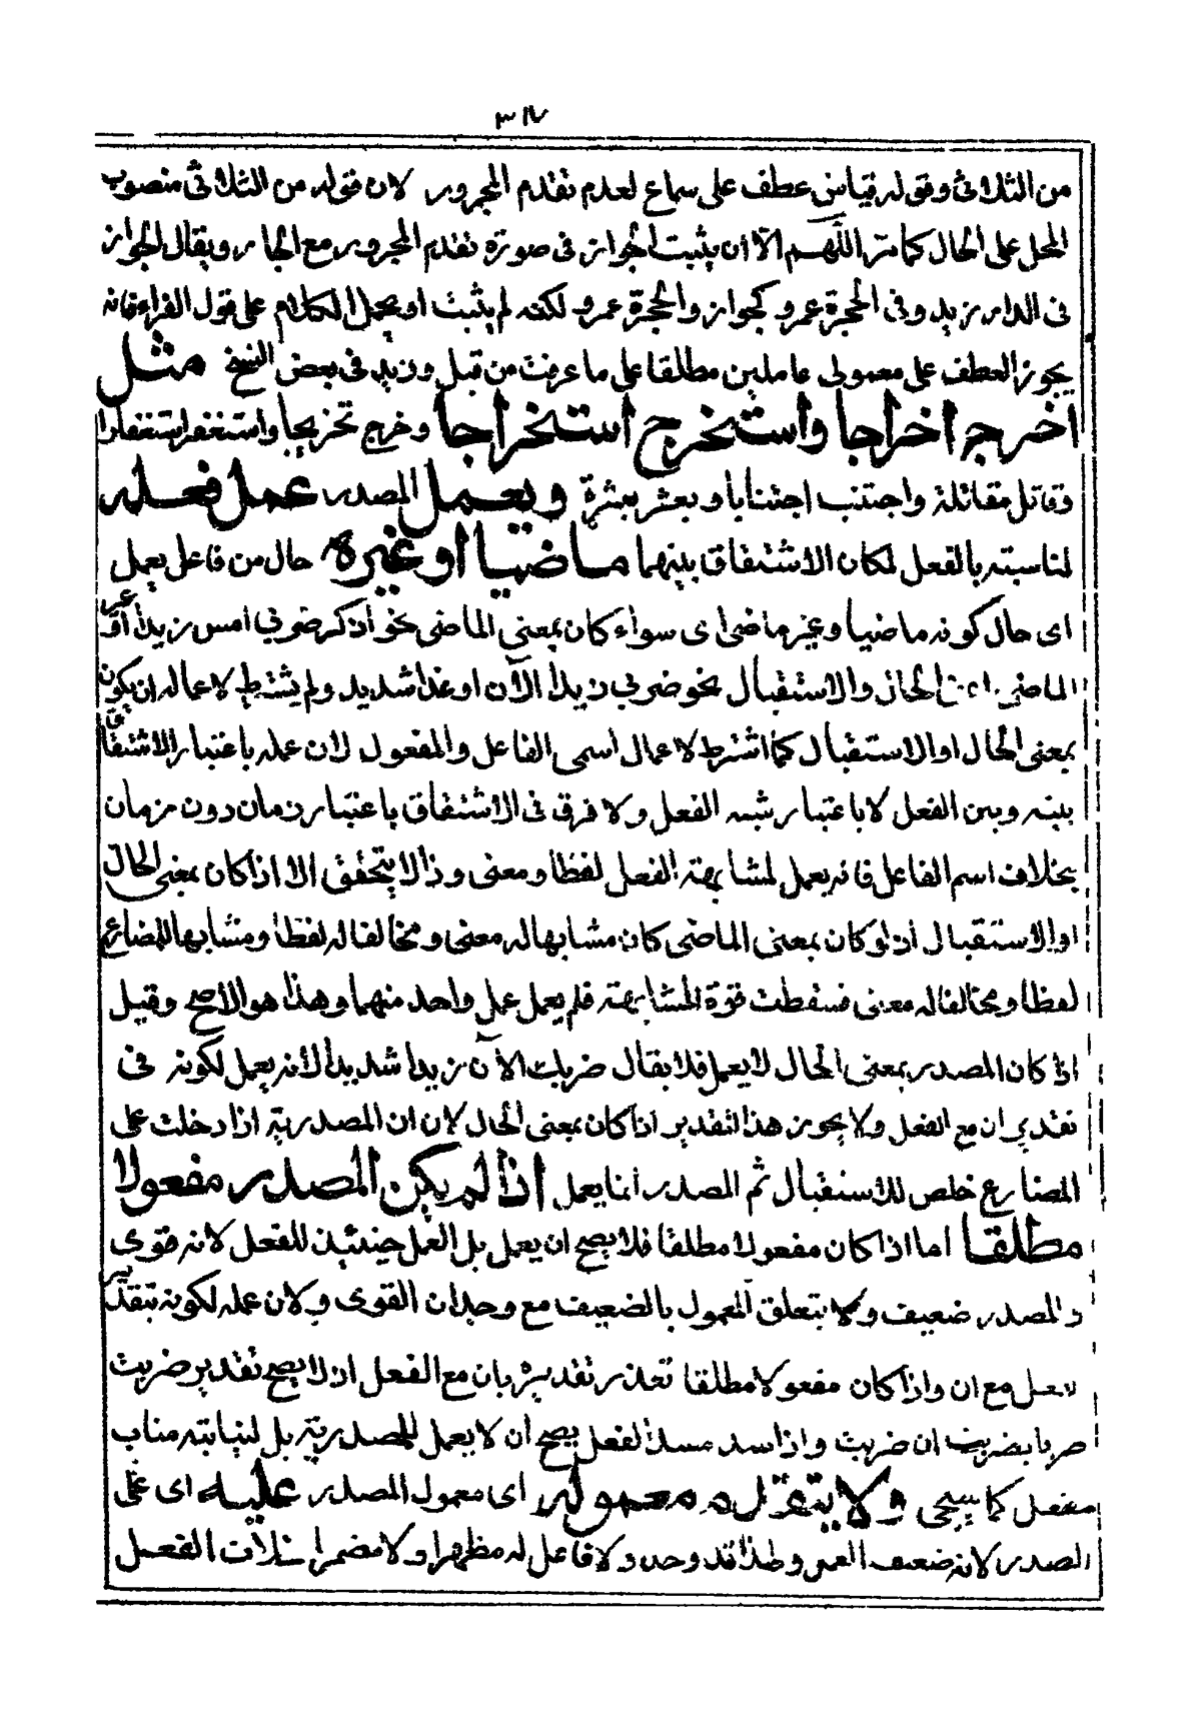 ٣١٧
من الثلاثى وقوله قياس عطف على سماع لعدم تقدم المجرور لان قوله من الثلاثى منصوب
المحل على الحال كما مر اللهم الا ان يثبت الجواز فى صورة تقدم المجرور مع الجار ويقال الجواز
فى الدار زيد وفى الحجرة عمرو كجواز والحجرة عمرو لكنه لم يثبت او يحمل الكلام على قول الفراء فانه
يجوز العطف على معمولى عاملين مطلقا على ما عرفت من قبل وزيد فى بعض النسخ مثل
اخرج اخراجا واستخرج استخراجا وخرج تخريجا واستغفر استغفارا
وقاتل مقاتلة واجتنب اجتنابا وبعثر بعثرة ويعمل المصدر عمل فعله
لمناسبته بالفعل لمكان الاشتقاق بينهما ماضيا او غيره حال من فاعل يعمل
اى حال كونه ماضيا وغير ماض اى سواء كان بمعنى الماضى نحو اذكر ضربى امس زيدا او غير
الماضى الحال والاستقبال نحو ضربى زيدا الآن او غدا شديد ولم يشترط لاعماله ان يكون
بمعنى الحال او الاستقبال كما اشترط لاعمال اسمى الفاعل والمفعول لان عمله باعتبار الاشتقاق
بينه وبين الفعل لا باعتبار شبه الفعل ولا فرق فى الاشتقاق باعتبار زمان دون زمان
بخلاف اسم الفاعل فانه يعمل لمشابهته الفعل لفظا ومعنى وذا لا يتحقق الا اذا كان بمعنى الحال
او الاستقبال اذ لو كان بمعنى الماضى كان مشابها له معنى ومخالفا له لفظا ومشابها للمضارع
لفظا ومخالفا له معنى فسقطت قوة المشابهة فلم يعمل عمل واحد منهما وهذا هو الاصح وقيل
اذا كان المصدر بمعنى الحال لا يعمل فلا يقال ضربك الآن زيدا شديد لانه يعمل لكونه فى
تقدير ان مع الفعل ولا يجوز هذا التقدير اذا كان بمعنى الحال لان ان المصدرية اذا دخلت على
المضارع خلص للاستقبال ثم المصدر انما يعمل اذا لم يكن المصدر مفعولا
مطلقا اما اذا كان مفعولا مطلقا فلا يصح ان يعمل بل العمل حينئذ للفعل لانه قوى
والمصدر ضعيف ولا يتعلق المعمول بالضعيف مع وجدان القوى ولان عمله لكونه بتقدير
الفعل مع ان واذا كان مفعولا مطلقا تعذر تقديره بان مع الفعل اذ لا يصح تقدير ضربت
ضربا بضربت ان ضربت واذا سد مسد الفعل يصح ان لا يعمل للمصدرية بل لنيابته مناب
الفعل كما سيجى ولا يتقدم معموله اى معمول المصدر عليه اى على
المصدر لانه ضعيف العمل ولا فاعل له مظهرا ولا مضمرا الفعل